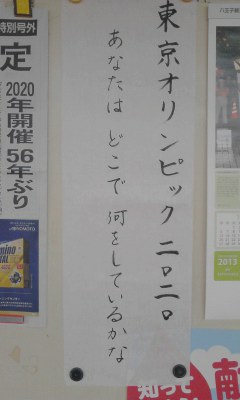 東京オリンピック二〇二〇
あなたは どこで 何をしているかな
特別号外
定
2020
年開催 56年ぶり
2013
知って